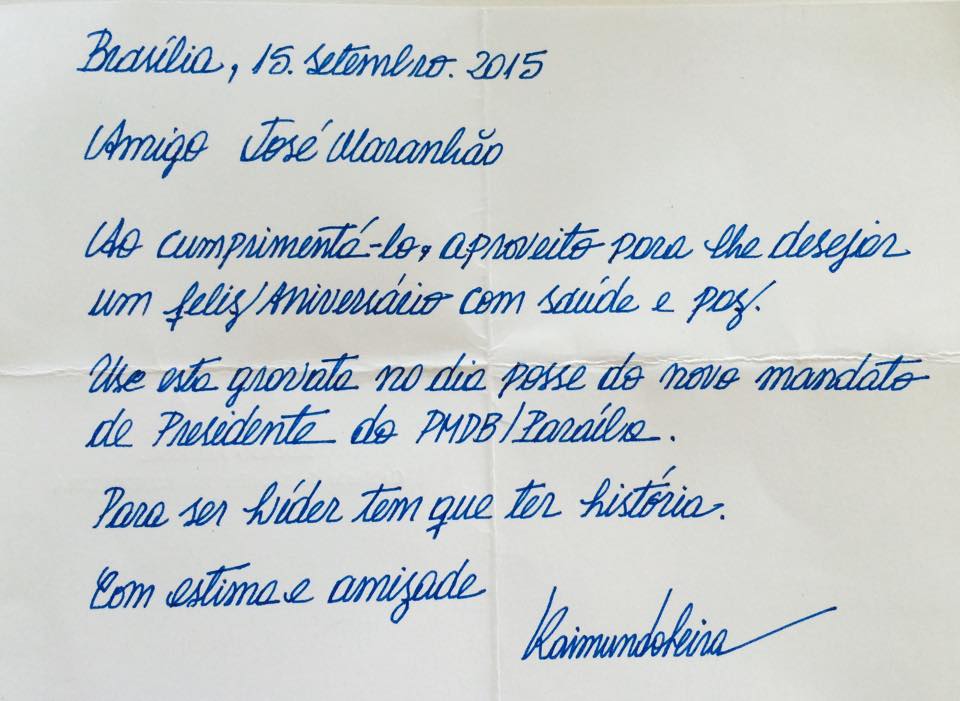 Brasília, 15. setembro. 2015
Amigo José Maranhão
Ao cumprimentá-lo, aproveito para lhe desejar
um feliz Aniversário com saúde e paz.
Use esta gravata no dia posse do novo mandato
de Presidente do PMDB/Paraíba.
Para ser Líder tem que ter história.
Com estima e amizade
Raimundo Lira